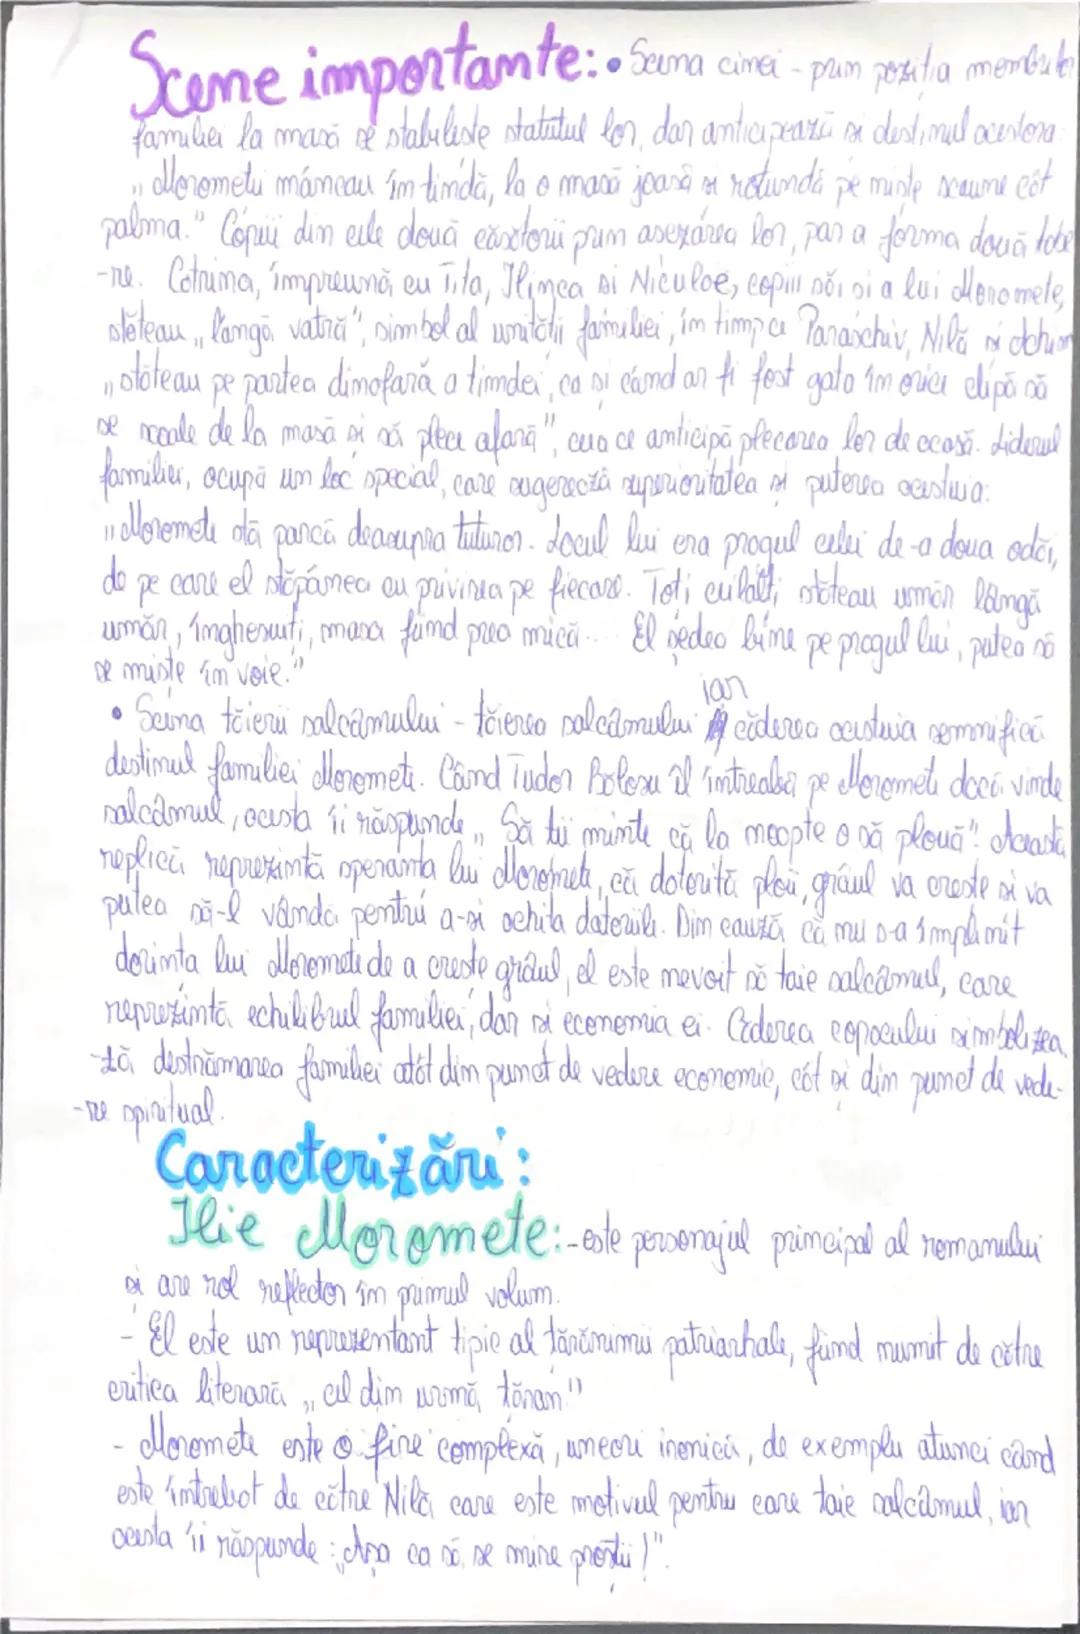 Scene importante: • Scena cinei - prin poziția membrilor
familiei la masă se stabilește statutul lor, dar anticipează și destinul acestora:
„Morometii mâncau în tindă, la o masă joasă și rotundă pe niște scaune cât
palma." Copiii din cele două căsătorii prin așezarea lor, par a forma două tabe
-re. Catrina, împreună cu Tita, Ilinca și Niculae, copiii săi și a lui Moromete,
stăteau „lângă vatră", simbol al unității familiei, în timp ce Paraschiv, Nilă și Achim
„stăteau pe partea dinafară a tindei, ca și când ar fi fost gata în orice clipă să
se scoale de la masă și să plece afară", ceea ce anticipă plecarea lor de acasă. Liderul
familiei, ocupă un loc special, care sugerează superioritatea și puterea acestuia:
„Moromete stă parcă deasupra tuturor. Locul lui era pragul celei de-a doua odăi,
de pe care el stăpânea cu privirea pe fiecare. Toți ceilalți stăteau umăr lângă
umăr, înghesuiți, masa fiind prea mică... El ședea bine pe pragul lui, putea să
se miște în voie."
iar
• Scena tăierii salcâmului - tăierea salcâmului căderea acestuia semnifică
destinul familiei Moromete. Când Tudor Bălosu îl întreabă pe Moromete dacă vinde
salcâmul, acesta îi răspunde „Să tii minte că la noapte o să plouă". Această
replică reprezintă speranta lui Moromete, că datorită ploii, grâul va creste și va
putea să-l vândă pentru a-și achita datoriile. Din cauză că nu s-a împlinit
dorinta lui Moromete de a creste grâul, el este nevoit să taie salcâmul, care
reprezintă echilibrul familiei, dar și economia ei. Căderea copacului simbolizea
-ză destrămarea familiei atât din punct de vedere economic, cât și din punct de vede-
-re spiritual.
Caracterizări:
Ilie Moromete: - este personajul principal al romanului
și are rol reflector în primul volum.
- El este un reprezentant tipic al tărănimii patriarhale, fiind numit de către
critica literară „cel din urmă tăran"
- Moromete este o fire complexă, uneori ironică, de exemplu atunci când
este întrebat de către Nilă care este motivul pentru care taie salcâmul, iar
acesta îi răspunde: „Așa ca să se mire proștii!".